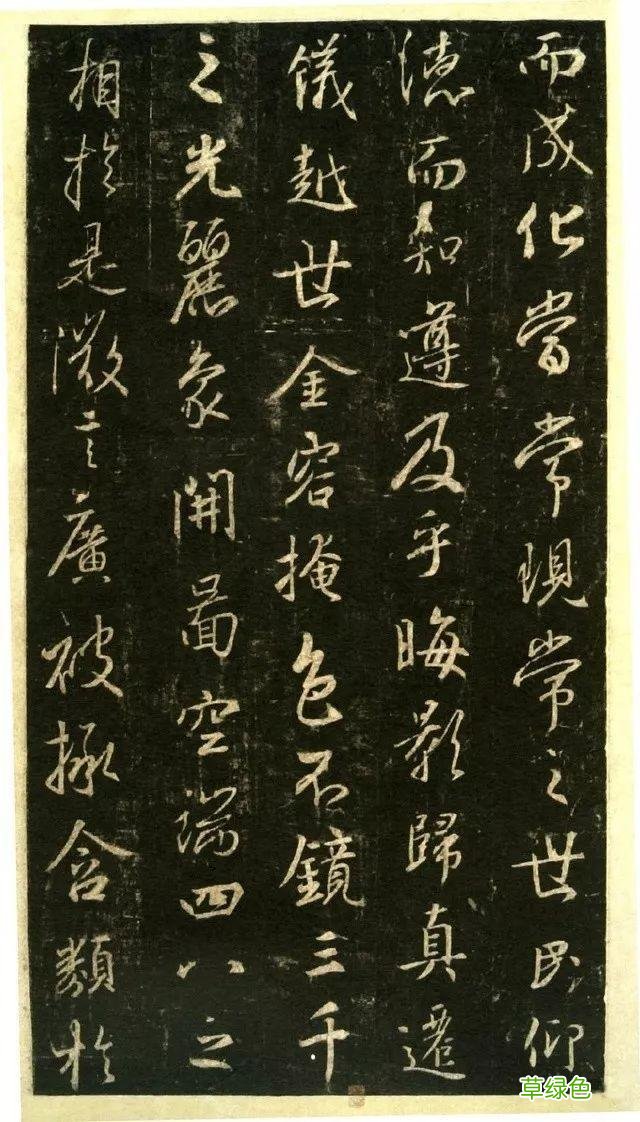 而成化當常現常之世民仰
德而知遵及乎晦影歸真遷
儀越世金容掩色不鏡三千
之光麗象開圖空端四八之
相於是微言廣被拯含類於
草绿色